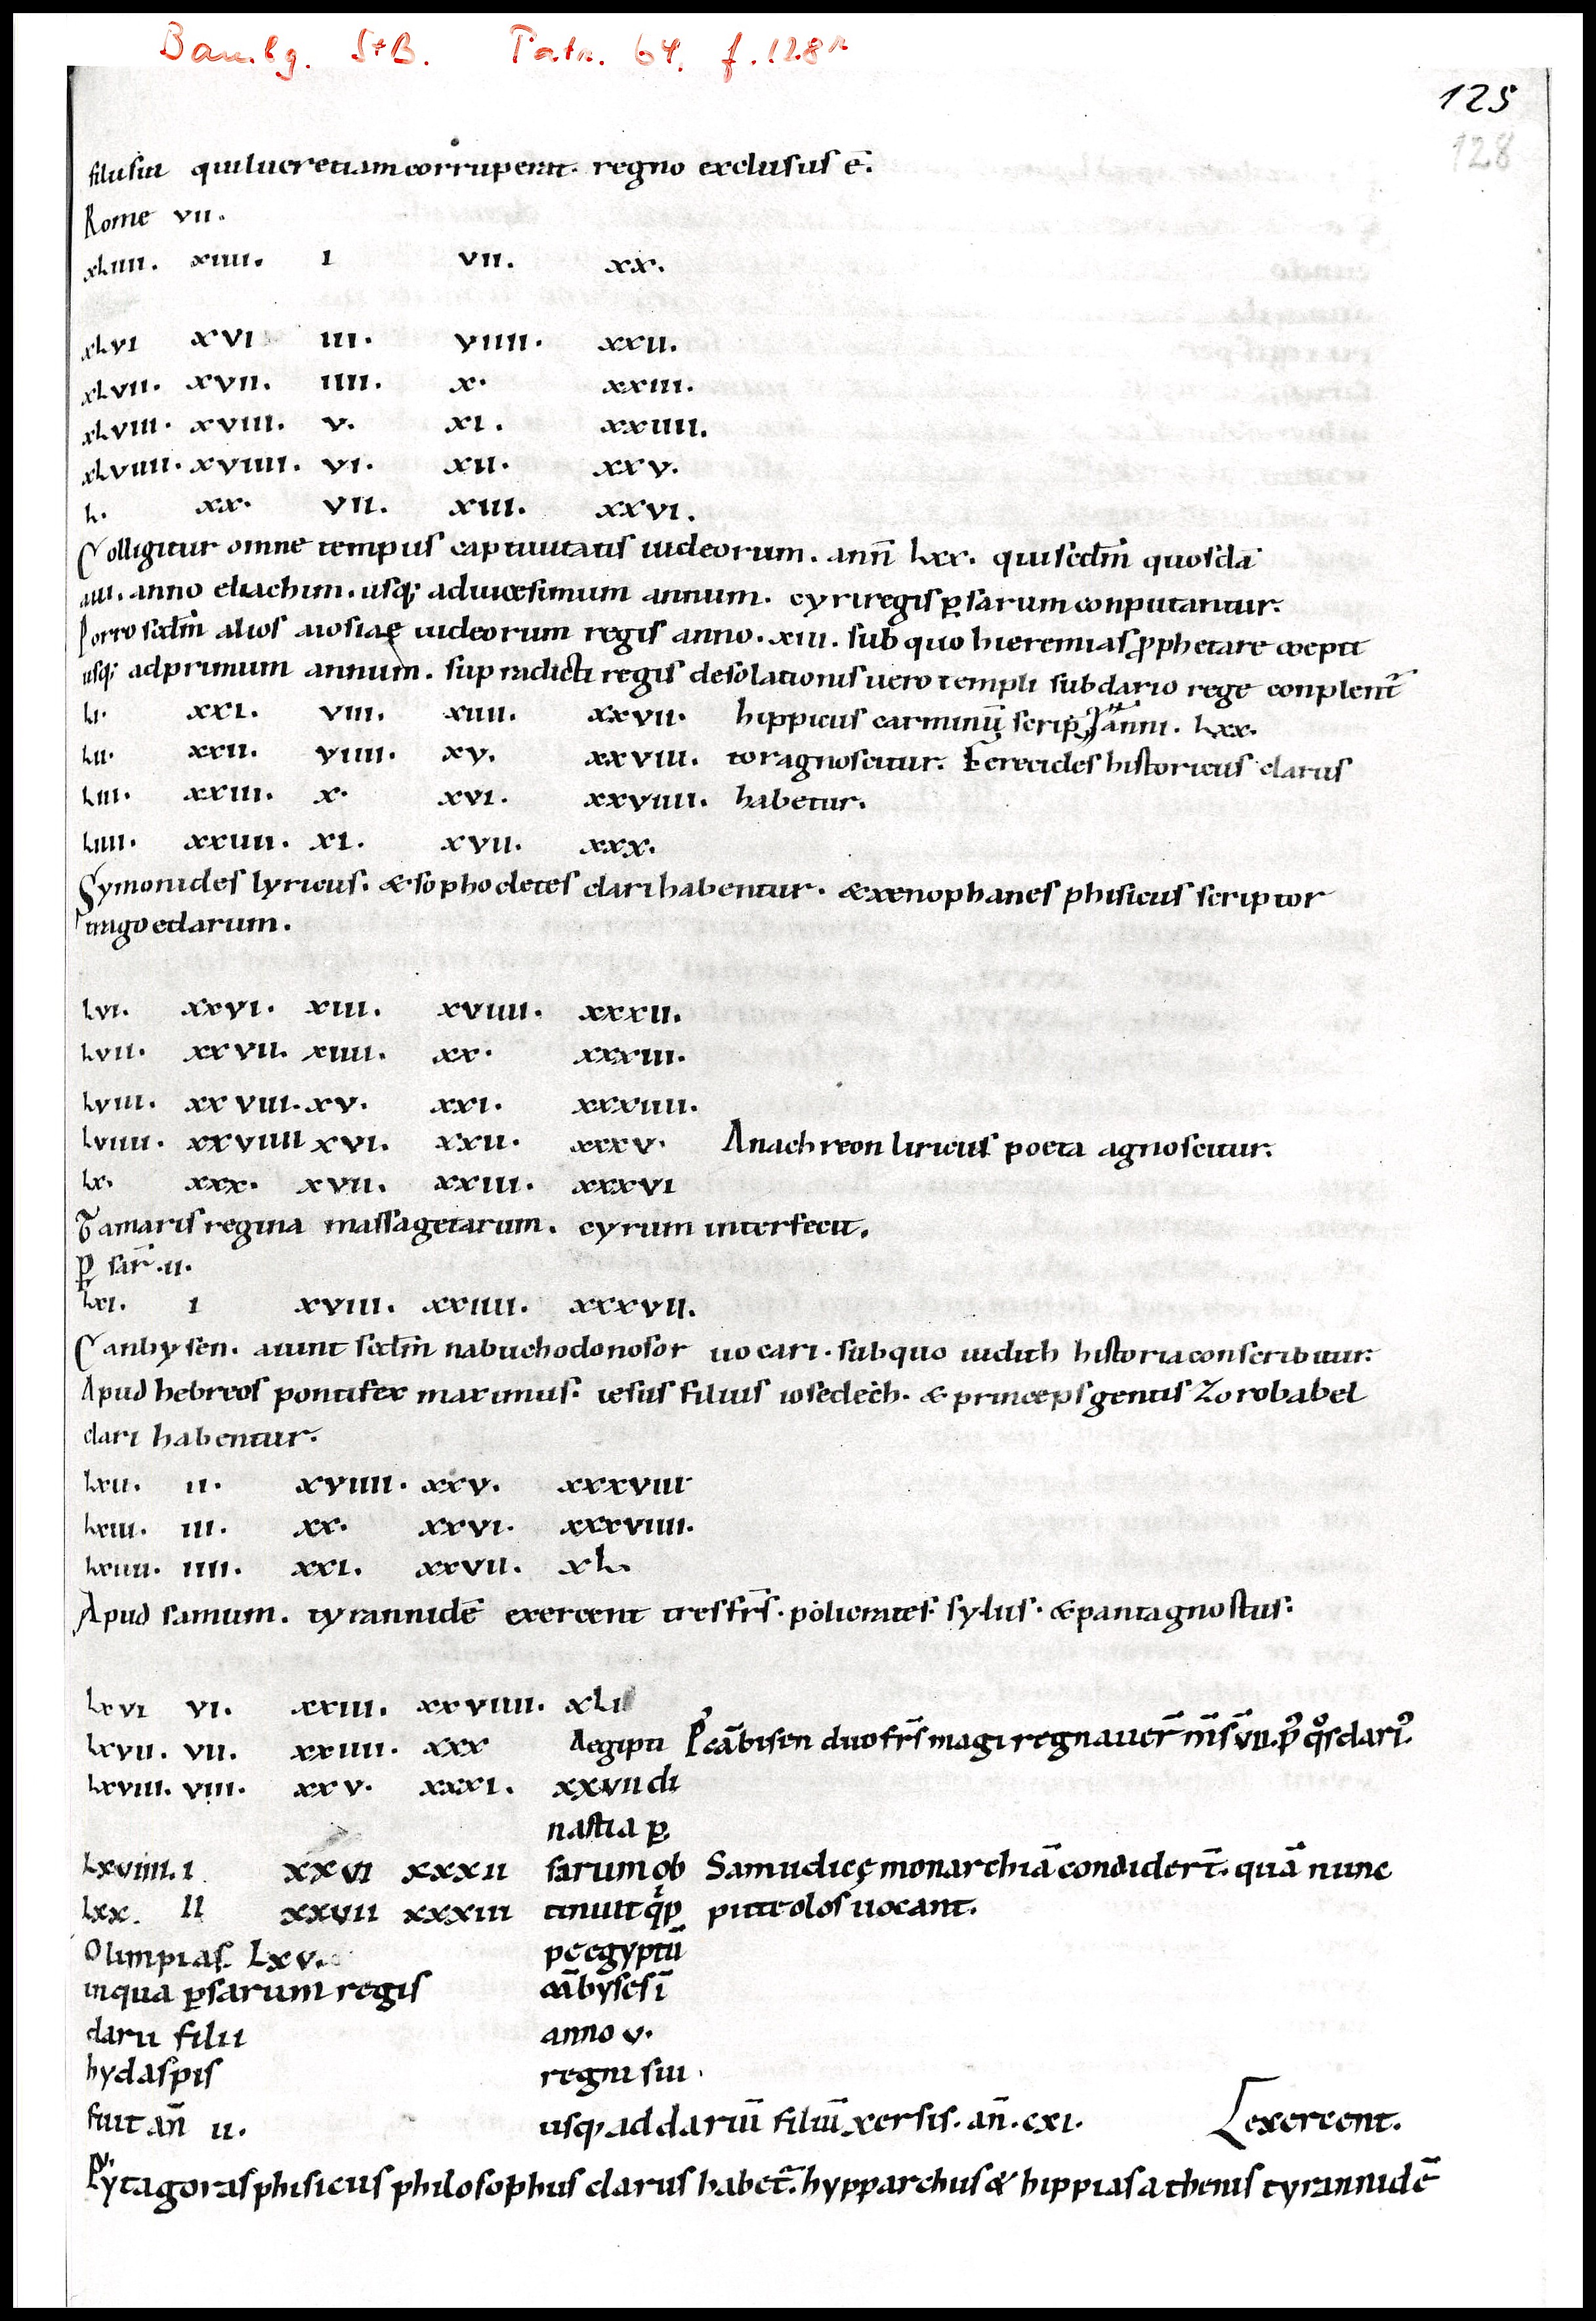 Bambg. StB. Patr. 64. f. 128r
125
128
filiisui qui lucretiam corruperat. regno exclusus ē.
Rome vii.
xLiiii. xiiii. i vii. xx.
xLvi xvi iii. viiii. xxii.
xLvii. xvii. iiii. x. xxiii.
xLviii. xviii. v. xi. xxiiii.
xLviiii. xviiii. vi. xii. xxv.
L. xx. vii. xiii. xxvi.
Colligitur omne tempus captiuitatis iudeorum. anñ Lxx. qui scd̄m quosdā
a iii. anno eliachim. usq; ad uicesimum annum. cyri regis ꝑsarum conputantur.
Porro scd̄m alios a iosiae iudeorum regis anno. xiii. sub quo hieremias ꝓphetare coepit
usq; ad primum annum. supradicti regis desolationis uero templi sub dario rege conplent̄
Li. xxi. viii. xiiii. xxvii. hippicus carminū scrip anni. Lxx.
Lii. xxii. viiii. xv. xxviii. tor agnoscitur. Ferecides historicus clarus
Liii. xxiii. x. xvi. xxviiii. habetur.
Liiii. xxiiii. xi. xvii. xxx.
Symonides lyricus. & sophocletes clari habentur. & xenophanes phisicus scriptor
tragoediarum.
Lvi. xxvi. xiii. xviiii. xxxii.
Lvii. xxvii. xiiii. xx. xxxiii.
Lviii. xxviii. xv. xxi. xxxiiii.
Lviiii. xxviiii xvi. xxii. xxxv. Anachreon liricus poeta agnoscitur.
Lx. xxx. xvii. xxiii. xxxvi
Tamaris regina massagetarum. cyrum interfecit.
ꝑ sar̄. ii.
Lxi. i xviii. xxiiii. xxxvii.
Canbysen. aiunt scd̄m nabuchodonosor uocari. sub quo iudith historia conscribitur.
Apud hebreos pontifex maximus. iesus filius iosedech. & princeps gentis Zorobabel
clari habentur.
Lxii. ii. xviiii. xxv. xxxviii
Lxiii. iii. xx. xxvi. xxxviiii.
Lxiiii. iiii. xxi. xxvii. xL.
Apud samum. tyrannidē exercent tres fr̄s. policrates. sylus. & pantagnostus.
Lxvi vi. xxiii. xxviiii. xLi
Lxvii. vii. xxiiii. xxx Aegipti P' cābisen duo fr̄s magi regnauer̄ m̄s vii. p' q̊s dari'.
Lxviii. viii. xxv. xxxi. xxvii di
nastia ꝑ
Lxviiii. i xxvi xxxii sarum ob Samu dicę monarchiā condidert̄. quā nunc
Lxx. ii xxvii xxxiii tinuit q̇ p puteolos uocant.
Olimpias. Lxv. pe egyptū
in qua ꝑsarum regis cābyses ī
darii filii anno v.
hydaspis regni sui.
fuit an̄ ii. usq; ad dariū filiū xersis. an̄. cxi. exercent.
Pytagoras phisicus philosophus clarus habet̄. hypparchus & hippias athenis tyrannidē